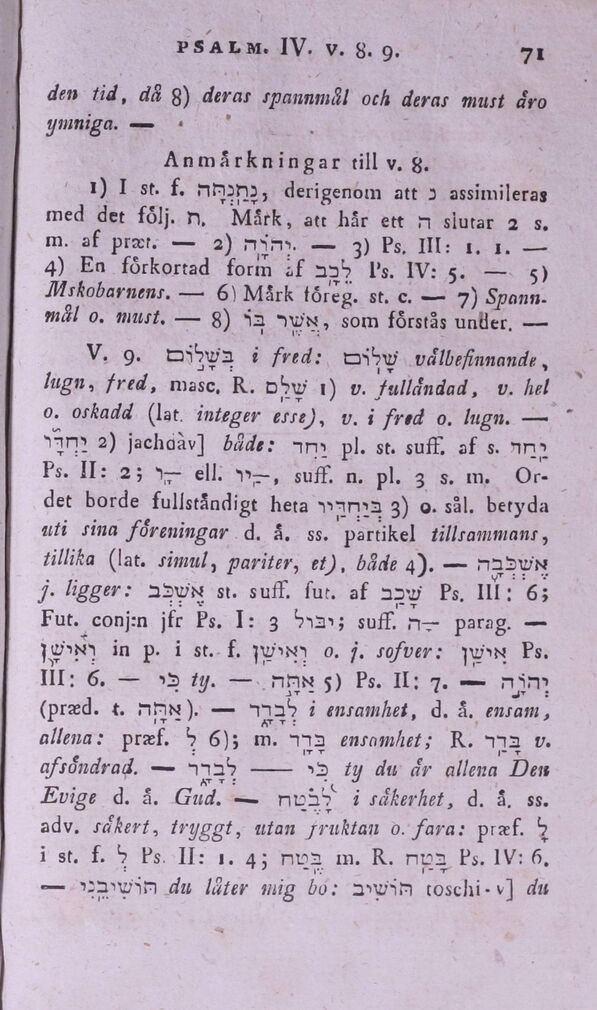 PSALM. IV. v. 8. 9. 71
den tid, då 8) deras spannmål och deras must äro
ymniga. —
Anmårkningar till v. 8.
1) I st. f. נָתַנְתָּה, derigenom att נ assimileras
med det följ. ת. Mårk, att hår ett ה slutar 2 s.
m. af præt. — 2) יְהוָֹה. — 3) Ps. III: 1. 1. —
4) En förkortad form af לֵבָב Ps. IV: 5. — 5)
Mskobarnens. — 6) Mårk föreg. st. c. — 7) Spann-
mål o. must. — 8) אֲשֶׁר בּוֹ, som förstås under. —
V. 9. בְּשָׁלוֹם i fred: שָׁלוֹם vålbefinnande,
lugn, fred, masc. R. שָׁלַם 1) v. fullåndad, v. hel
o. oskadd (lat. integer esse), v. i fred o. lugn. —
יַחְדָּו 2) jachdàv] både: יַחַד pl. st. suff. af s. יַחַד
Ps. II: 2; ָו ell. ָיו—, suff. n. pl. 3 s. m. Or-
det borde fullståndigt heta בְּיַחְדָּיו 3) o. sål. betyda
uti sina föreningar d. å. ss. partikel tillsammans,
tillika (lat. simul, pariter, et), både 4). — אֶשְׁכְּבָה
j. ligger: אֶשְׁכַּב st. suff. fut. af שָׁכַב Ps. III: 6;
Fut. conj:n jfr Ps. I: 3 יבּוֹל; suff. ָה— parag. —
וְאִישָׁן in p. i st. f. וְאִישַׁן o. j. sofver: אִישַׁן Ps.
III: 6. — כִּי ty. — אַתָּה 5) Ps. II: 7. — יְהוָֹה
(præd. t. אַתָּה). — לְבָדָד i ensamhet, d. å. ensam,
allena: præf. לְ 6); m. בָּדָד ensamhet; R. בָּדַד v.
afsöndrad. — לְבָדָד —— כִּי ty du år allena Den
Evige d. å. Gud. — לָבֶטַח i såkerhet, d. å. ss.
adv. såkert, tryggt, utan fruktan o. fara: præf. לָ
i st. f. לְ Ps. II: 1. 4; בֶּטַח m. R. בָּטַח Ps. IV: 6.
— תּוֹשִׁיבֵנִי du låter mig bo: תּוֹשִׁיב toschi-v] du